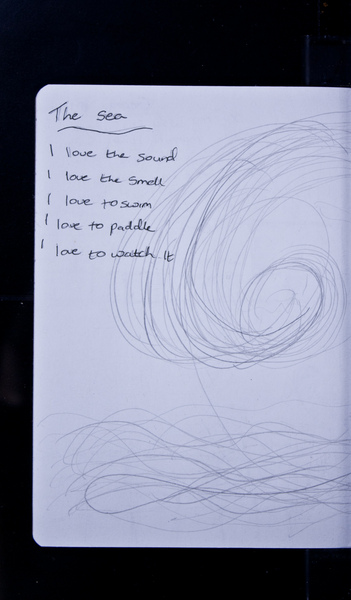 The sea
I love the sound
I love the smell
I love to swim
I love to paddle
I love to watch it